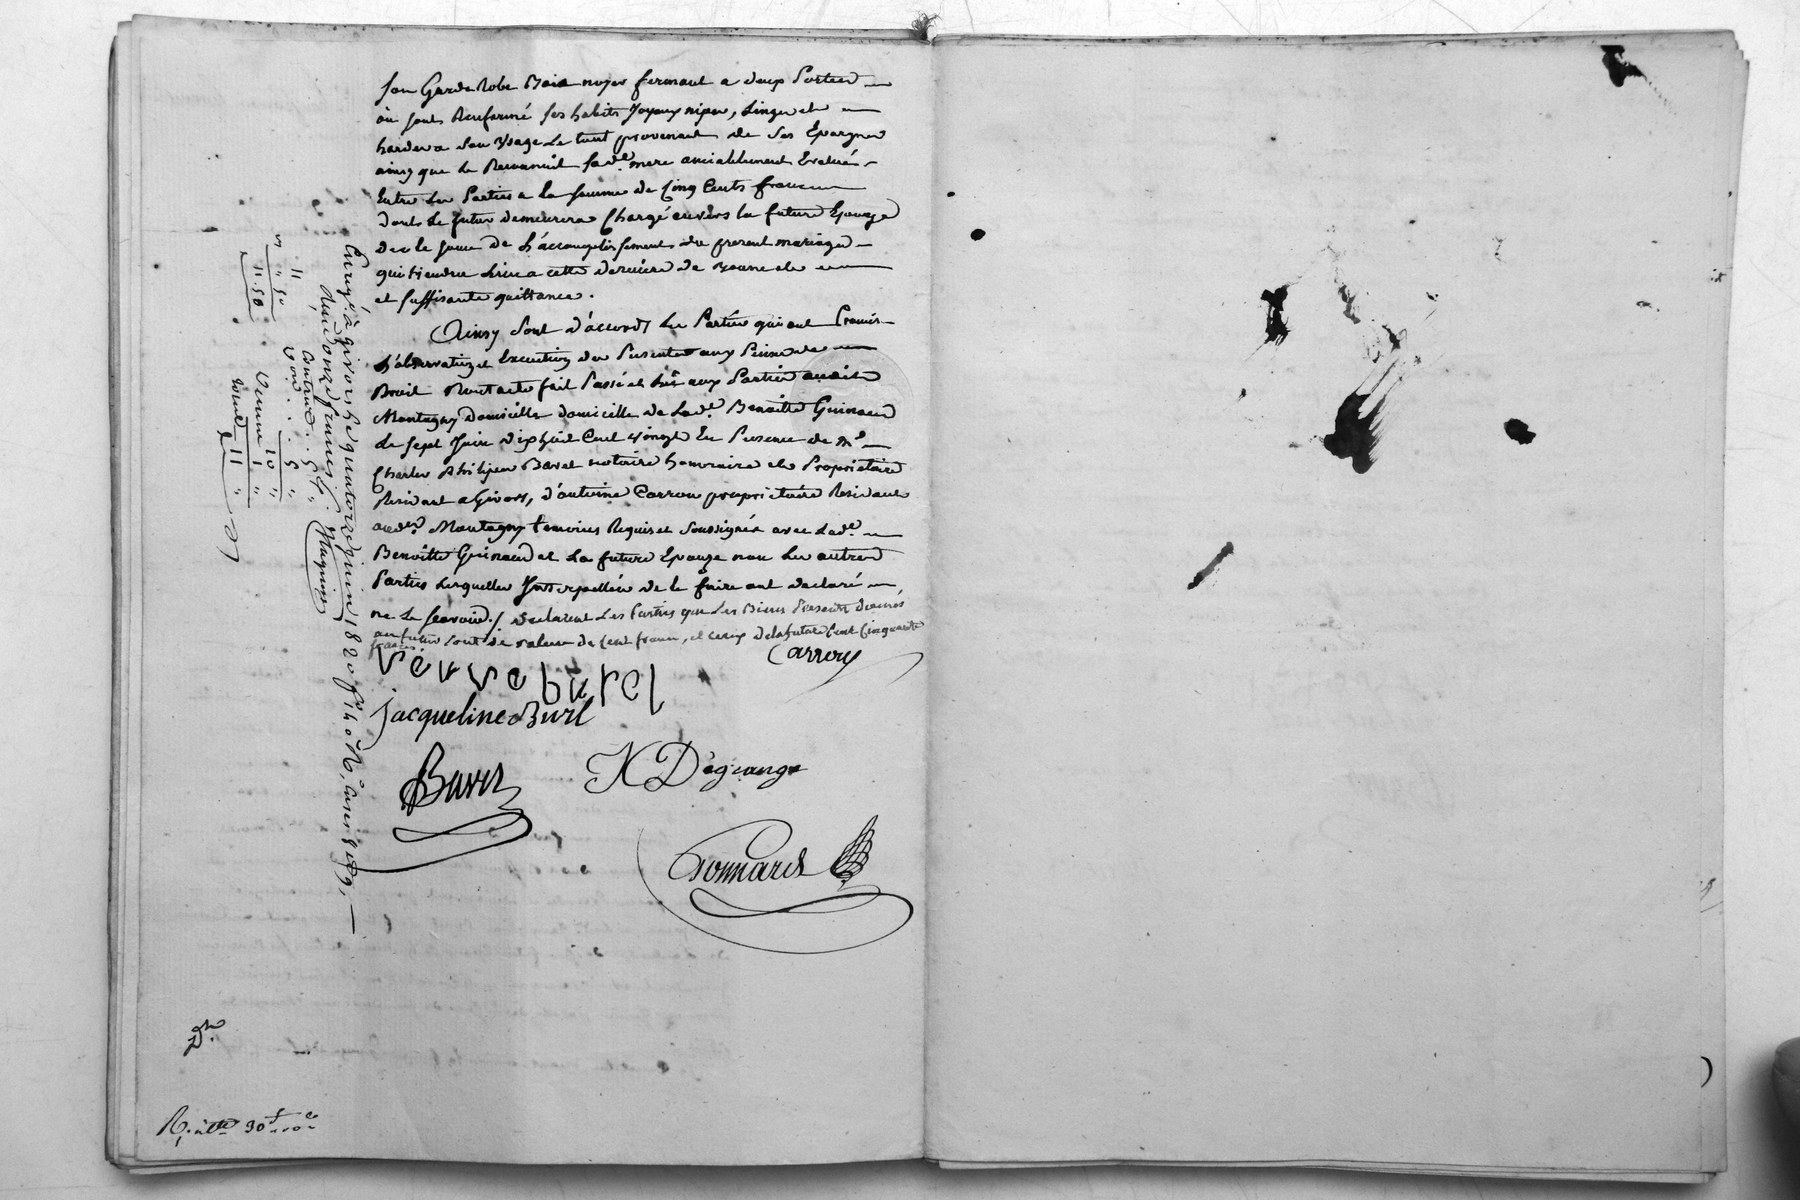 son Garderobe Bois noyer fermant a deux Portes
où sont Renfermé ses habits Joyaux nipes, Linge et
hardes a son Usage Le tout provenant de Ses Epargnes
ainsy que le Reconnoit sad.e mere amiablement Evalué
Entre Les Parties a la somme de Cinq Cents francs
dont Le futur demeurera Chargé envers la future Epouze
dès le jour de L'accomplissement du present mariage
qui tiendra Lieu a cette derniere de bonne et
et suffisante quittance.
Ainsy Sont d'accord Les Parties qui ont Promis
L'observation et Execution des Presentes aux Peines de
Droit Dont acte fait Passé et Lû aux Parties audit
Montagny Domicille domicille de Lad.e Benoitte Guinand
Le Sept Juin dix huit Cent vingt En Presence de M.e
Charles Philipes Baret notaire honoraire et Proprietaire
Residant a Givors, d'antoine Carron proprietaire Residant
aud.t Montagny temoins Requis et Soussignés avec Lad.e
Benoitte Guinand et La future Epouze non Les autres
Parties Lesquelles Interpellées de le faire ont declaré
ne Le Scavoir./. declarent Les Parties que Les Biens Presents donnés
au futur sont de valeur de Cent francs, et ceux de la future Cent Cinquante
francs.
Carron
verve burel
Jacqueline Burl
Baret
Degrange
Bonnard
Enreg.é à givors le quatorze juin 1820
Reçu onze francs
11 " 50
11.50
10 "
1 "
11 "
D.h